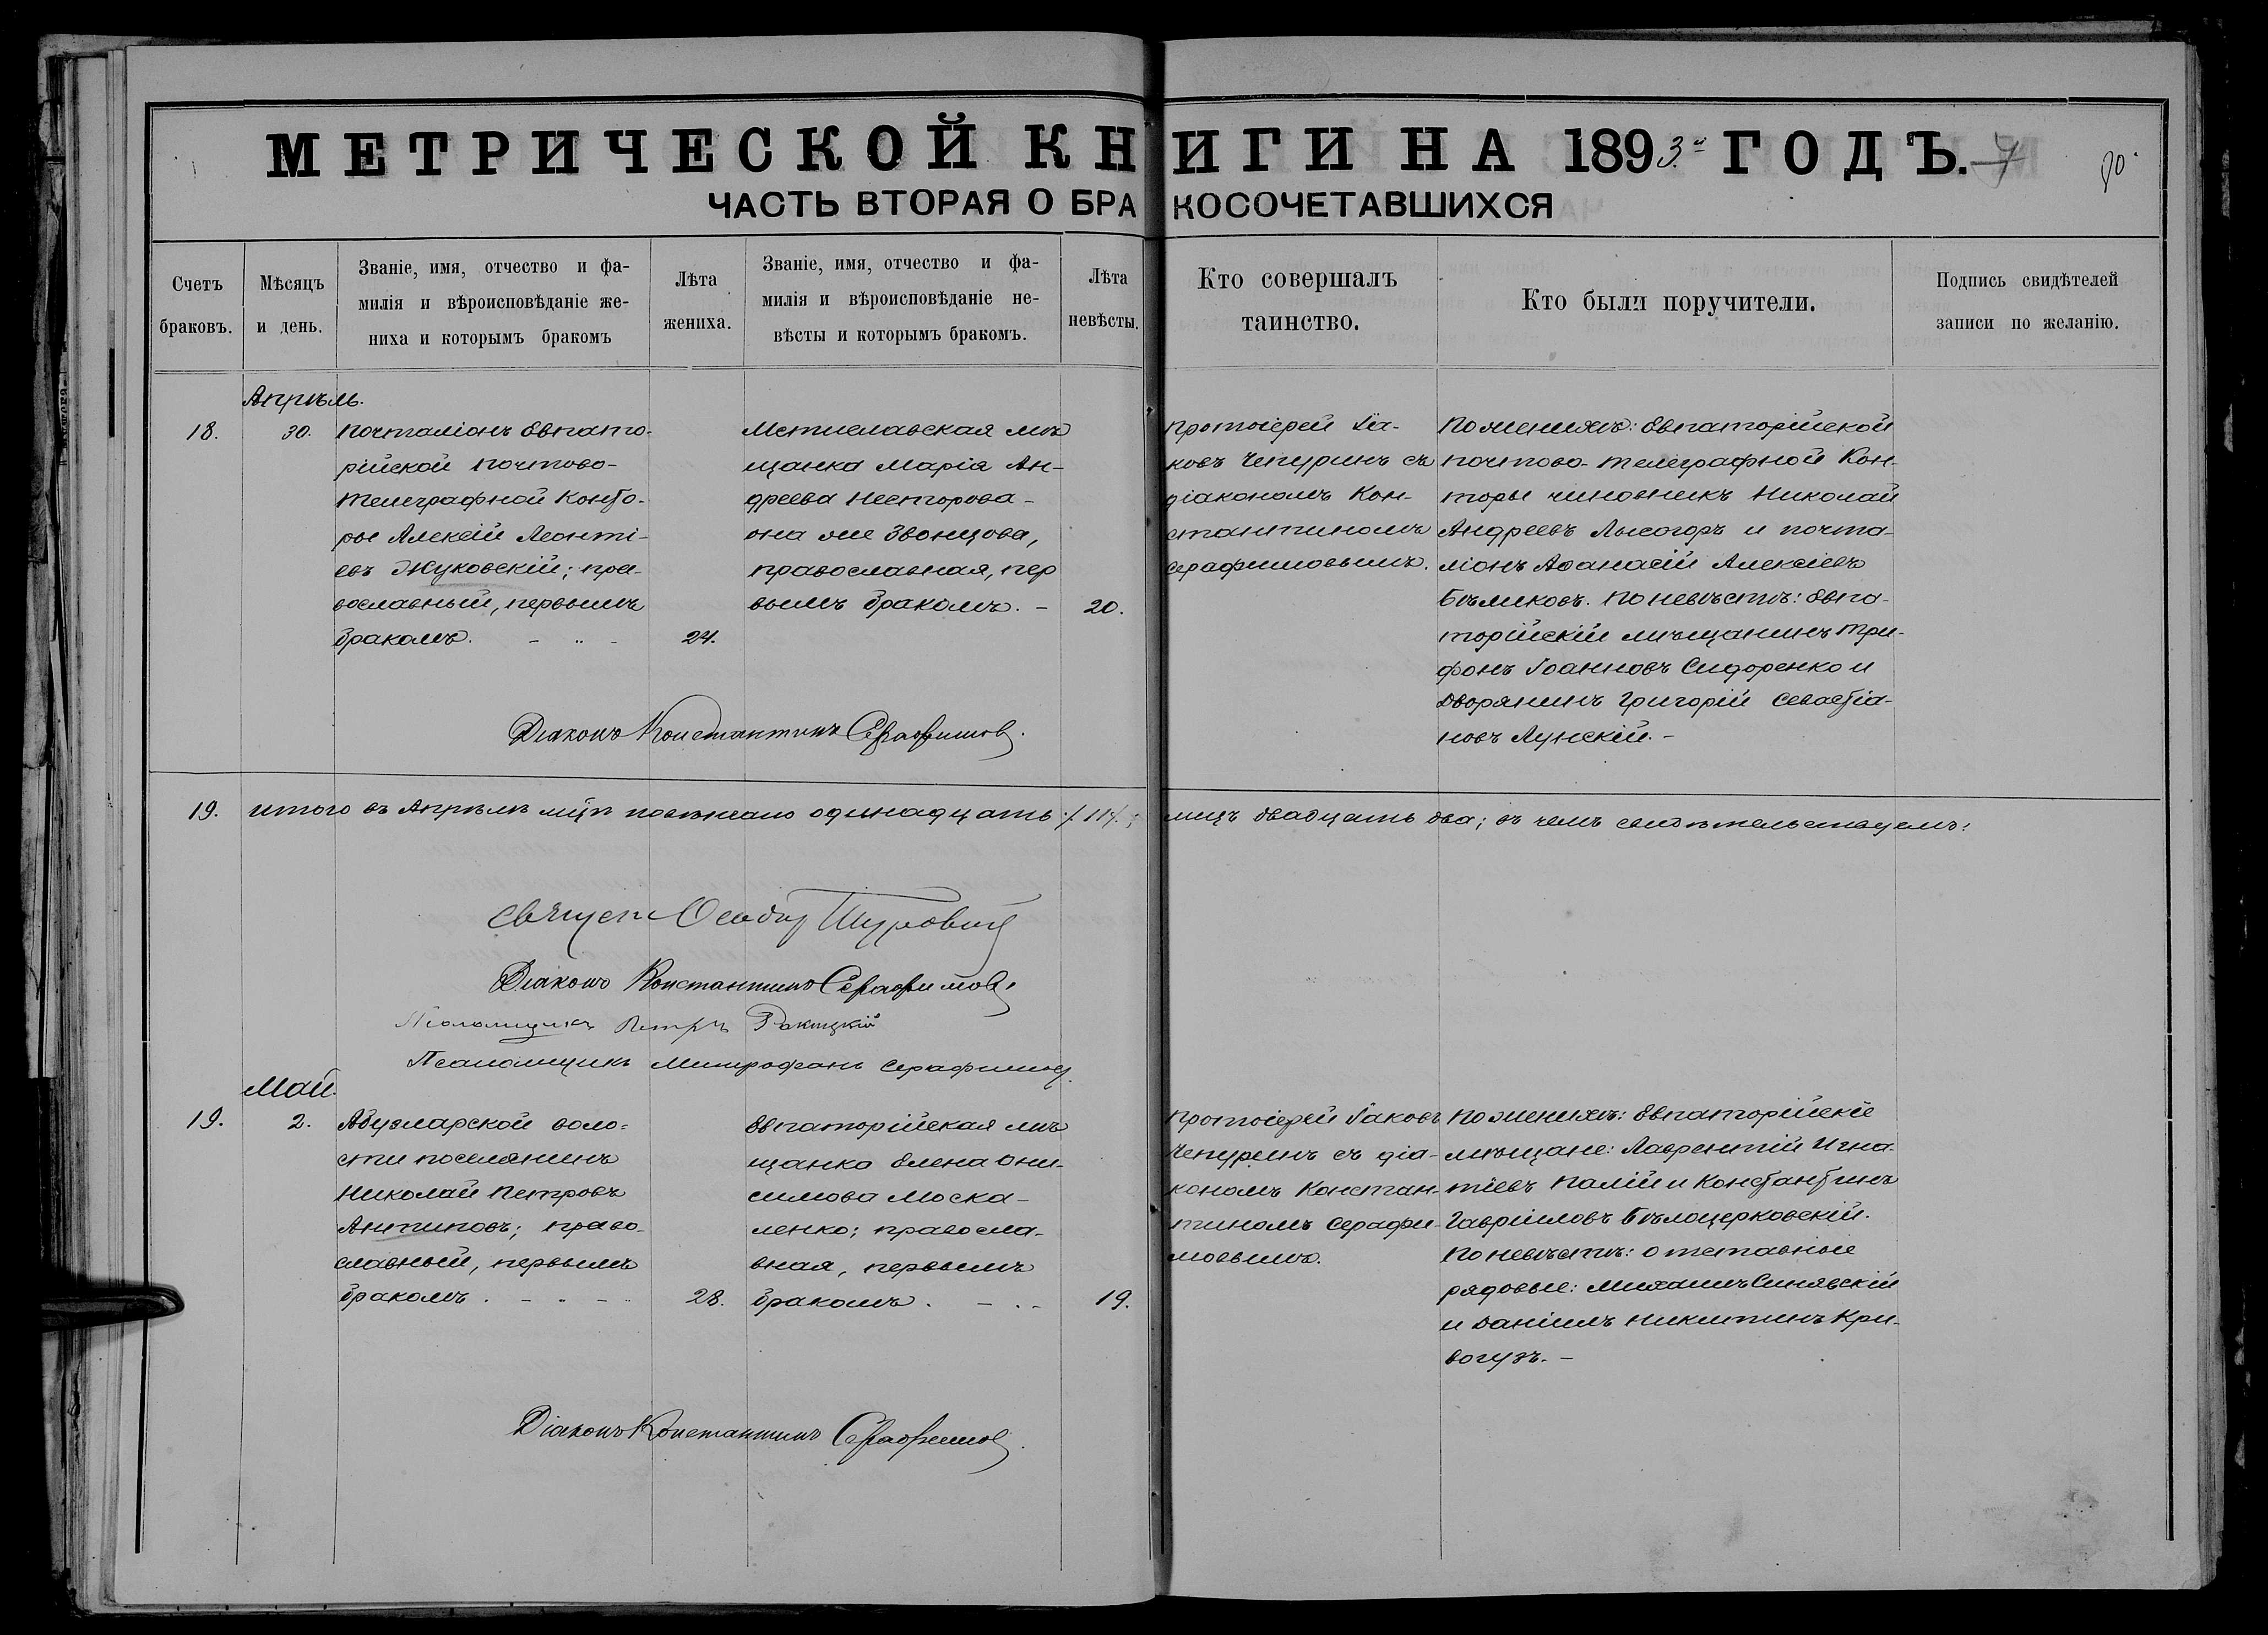 МЕТРИЧЕСКОЙ КНИГИ НА 1893-й ГОДЪ.
70
ЧАСТЬ ВТОРАЯ О БРАКОСОЧЕТАВШИХСЯ
Счетъ
браковъ.
Мѣсяцъ
и день.
Званіе, имя, отчество и фа-
милія и вѣроисповѣданіе же-
ниха и которымъ бракомъ
Лѣта
жениха.
Званіе, имя, отчество и фа-
милія и вѣроисповѣданіе не-
вѣсты и которымъ бракомъ.
Лѣта
невѣсты.
Кто совершалъ
таинство.
Кто были поручители.
Подпись свидѣтелей
записи по желанію.
Апрѣль.
18.
30.
Почталіонъ Евпато-
рійской почтово-
телеграфной Конто-
ры Алексій Леонті-
евъ Жуковскій; пра-
вославный, первымъ
бракомъ. -
24.
Мстиславская мѣ
щанка Марія Ан-
дреева Несторова -
она же Звонцова,
православная, пер
вымъ бракомъ. -
20.
Протоіерей Іа-
ковъ Чепуринъ съ
діакономъ Кон-
стантиномъ
Серафимовымъ.
По женихѣ: Евпаторійской
почтово-телеграфной Кон-
торы чиновникъ Николай
Андреевъ Лысогоръ и почта-
ліонъ Аѳанасій Алексіевъ
Бѣликовъ. По невѣстѣ: Евпа-
торійскій мѣщанинъ Три-
фонъ Іоанновъ Сидоренко и
дворянинъ Григорій Севастіа-
новъ Лунскій. -
Діаконъ Константинъ Серафимовъ.
19. итого въ Апрѣлѣ мцѣ повѣнчано одинадцать /11/.; лицъ двадцать два; въ чемъ свидѣтельствуемъ:
Священ Ѳеодор
Діаконъ Константинъ Серафимовъ
Псаломщикъ Петръ Ракицкій
Псаломщикъ Митрофанъ Серафимовъ.
Май.
19.
2.
Абузларской воло-
сти поселянинъ
Николай Петровъ
Антиповъ; право-
славный, первымъ
бракомъ. -
28.
Евпаторійская мѣ
щанка Елена Они-
симова Моска-
ленко; правосла-
вная, первымъ
бракомъ. -
19.
Протоіерей Іаковъ
Чепуринъ съ діа-
кономъ Констан-
тиномъ Серафи-
мовымъ.
По женихѣ: Евпаторійскіе
мѣщане: Лаврентій Игна-
тіевъ Палій и Константинъ
Гавріиловъ Бѣлоцерковскій.
По невѣстѣ: отставные
рядовые: Михаилъ Синявскій
и Даніилъ Никитинъ Кри-
вогузъ. -
Діаконъ Константинъ Серафимовъ.